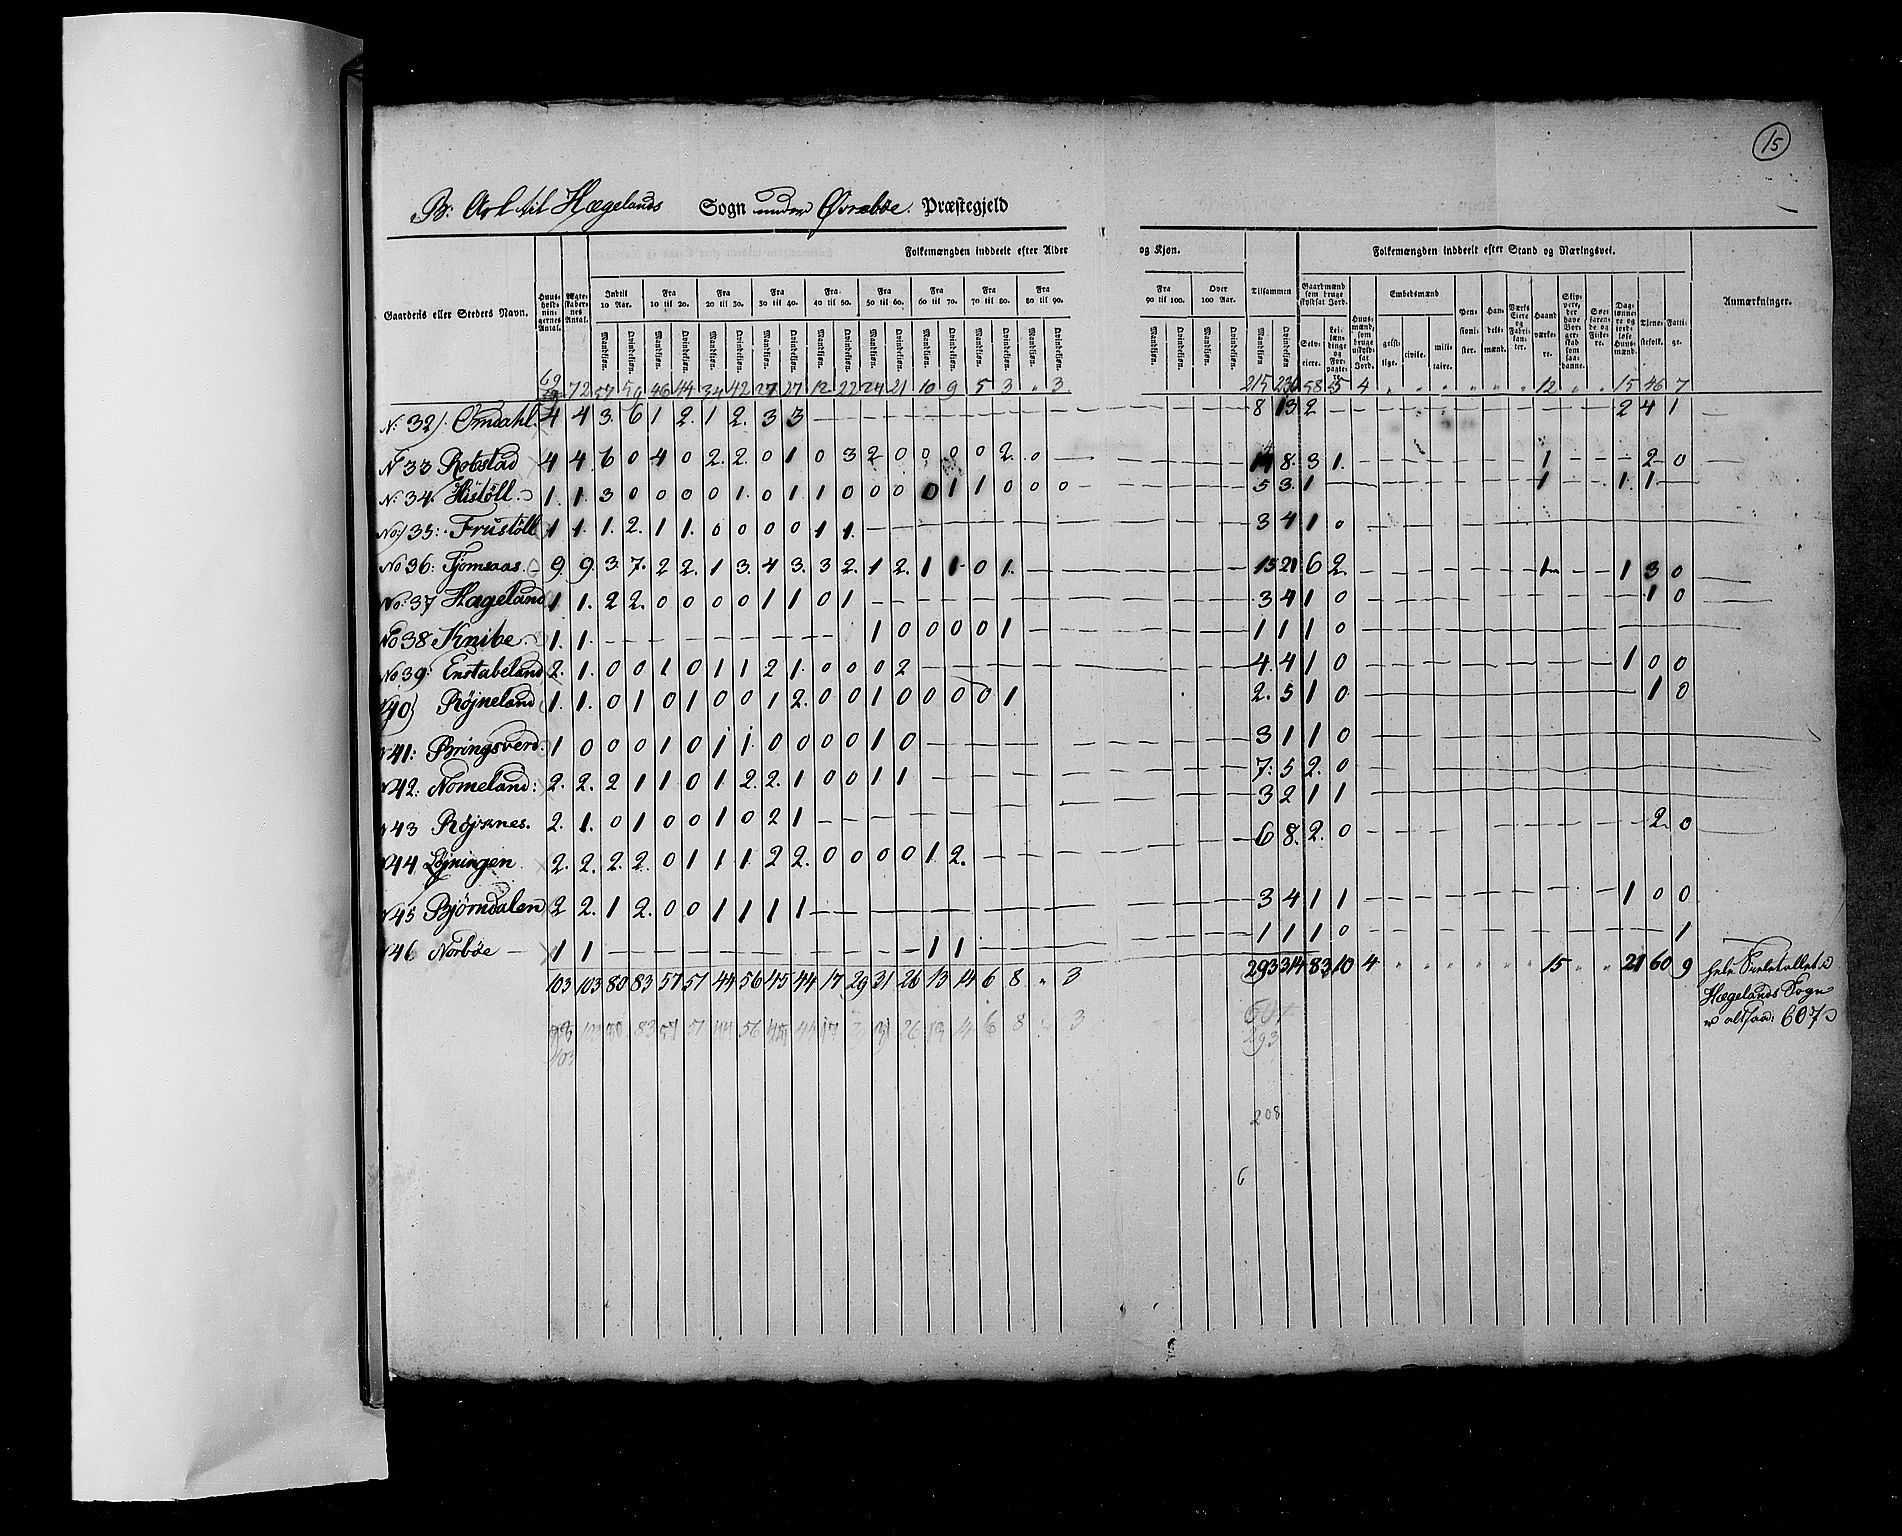 15
B: Ark til Hægelands Sogn under Øvrebøe. Præstegjeld
Folkemængden inddeelt efter Alder og Kjøn. Folkemængden inddeelt efter Stand og Næringsvei.
Gaardens eller Stedets Navn. Huus-holdnin-gernes Antal. Ægte-skaber-nes Antal. Indtil 10 Aar. Fra 10 til 20. Fra 20 til 30. Fra 30 til 40. Fra 40 til 50. Fra 50 til 60. Fra 60 til 70. Fra 70 til 80. Fra 80 til 90. Fra 90 til 100. Over 100 Aar. Tilsammen Gaardmænd som bruge skyldsat Jord. Huus-mænd, som bruge uskyld-sat Jord. Embedsmænd Pen-sioni-ster. Han-dels-mænd. Værks Eiere og Fabri-kan-ter. Haand værke-re. Skip-pere, der have Bor-ger-skab som saa-danne. Søe-faren-de og Fiske-re. Dag-lønne-re og jord-løse Huus-mænd. Tjene-stefolk. Fatti-ge. Anmærkninger.
Mandkjøn. Qvindekjøn. Mandkjøn. Qvindekjøn. Mandkjøn. Qvindekjøn. Mandkjøn. Qvindekjøn. Mandkjøn. Qvindekjøn. Mandkjøn. Qvindekjøn. Mandkjøn. Qvindekjøn. Mandkjøn. Qvindekjøn. Mandkjøn. Qvindekjøn. Mandkjøn. Qvindekjøn. Mandkjøn. Qvindekjøn. Mandkjøn. Qvindekjøn. Selv-eiere. Lei-læn-dinge og For-pagte-re. geist-lige. civile. mili-taire.
69 72 57 59 46 44 34 42 27 27 12 22 24 21 10 9 5 3 " 3 215 231 58 5 4 " " " " " " 12 " " 15 46 7
No: 32). Omdahl. 4 4 3. 6 1 2. 1 2. 3 3 — 8 13 2 — 2 4 1
No 33 Robstad 4 4. 6 0 4 0 2. 2. 0 1 0 3 2 0 0 0 0 2. 0 — 14 8. 3 1. — 1 — 2 0
No: 34. Histøll. 1. 1. 3 0 0 0 0 1. 0 1. 1 0 0 0 0 1 1 0 0 0 — 5 3. 1 — 1 — 1. 1. —
No: 35: Frustøll 1 1. 1. 2. 1 1. 0 0 0 0 1 1. — 3 4 1 0 —
No 36: Tjomsaas. 9. 9. 3 7. 2 2. 1 3. 4 3. 3 2. 1 2. 1 1. 0 1. — 15 21 6 2. — 1 — 1 3 0
No: 37 Hægeland 1 1. 2 2. 0 0 0 0 1 1 0 1 — 3 4 1 0 — 1 0
No 38 Knibe. 1. 1. — 1 0 0 0 0 1 — 1 1 1 0 —
No 39: Enstabeland 2. 1. 0 0 1 0 1 1 2 1. 0 0 0 2 — 4. 4 1 0 — 1 0 0
40) Røjneland 1. 1. 0 1 0 1 0 0 1 2. 0 0 1 0 0 0 0 1 — 2. 5 1 0 — 1 0
N 41: Bringsverd. 1 0 0 0 1 0 1 1. 0 0 0 0 1 0 — 3 1 1 0 —
N 42: Nomeland: 2. 2. 2 1 1 0 1 2. 2. 1 0 0 1 1 — 7. 5 2. 0 —
N 43 Røjsnes. 2. 1. 0 1 0 0 1 0 2 1 — 3 2 1 1 —
N 44 Løjningen 2. 2. 2. 2. 0 1 1 1. 2 2. 0 0 0 0 1. 2. — 6 8. 2. 0 — 2. 0
N 45 Bjørndalen 2 2. 1 2. 0 0 1 1 1 1 — 3 4 1 1 — 1 0 0
N 46 Norbøe — 1 1 — 1 1 — 1 1 1 0 — 1
103 103 80 83 57 57 44 56 45 44 17 29 31 26 13 14 6 8 " 3 293 314 83 10 4 " " " " " " 15 " " 21 60 9 hele Sieletallet i
Hægelands Sogn
er altsaa: 607
103 83 57 57 44 56 45 44 17 31 26 13 4 6 8 3 607
103 293
208
6